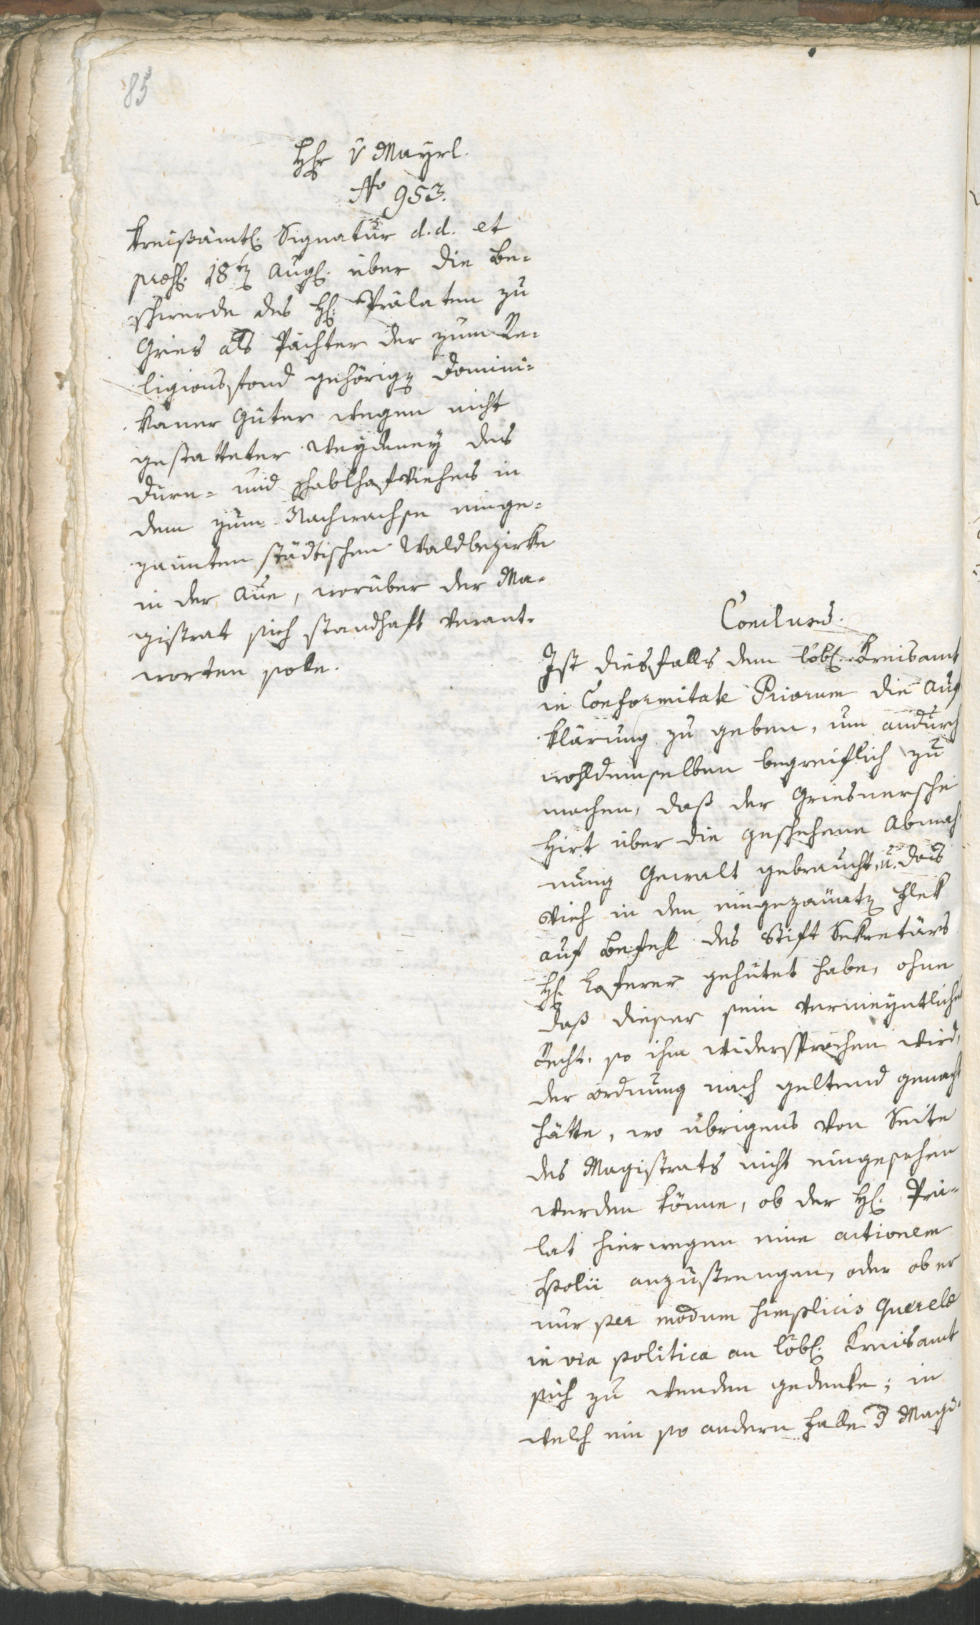 85
Hr. v Mayrl.
No 953.
Kreißämtl. Signatur d. d. et
praes. 18ten Aug. über die Be-
schwerde des H. Prälaten zu
Gries als Pächter der zum Re-
ligionsfond gehörigen Domini-
kaner Güter wegen nicht
gestatteter Weydney des
Dürn- und viehes in
dem zum Nachwachse einge-
zäunten städtischen Waldbezirke
in der Aue, worüber der Ma-
gistrat sich standhaft verant-
worten solle.
Conclusum.
Ist diesfalls dem löbl. Kreisamt
in Conformitate Priorum die Auf
klärung zu geben, um andurch
wohldemselben begreiflich zu
machen, daß der Griesnersche
Hirt über die geschehene Abmah
nung Gewalt gebraucht, u. das
Vieh in den eingezäunten Flek
auf Befehl des Stift Sekretärs
H. Laferer gehütet habe, ohne
daß dieser sein vermeyntliches
Recht, so ihm widersprochen wird,
der Ordnung nach geltend gemacht
hätte, wo übrigens von Seite
des Magistrats nicht eingesehen
werden könne, ob der H. Prä-
lat hierwegen eine actionem
Spolii anzustrengen, oder ob er
nur per modum simplicis Querelae
in via politica an löbl. Kreisamt
sich zu wenden gedenke; in
welch ein so andern Falle d Magi-